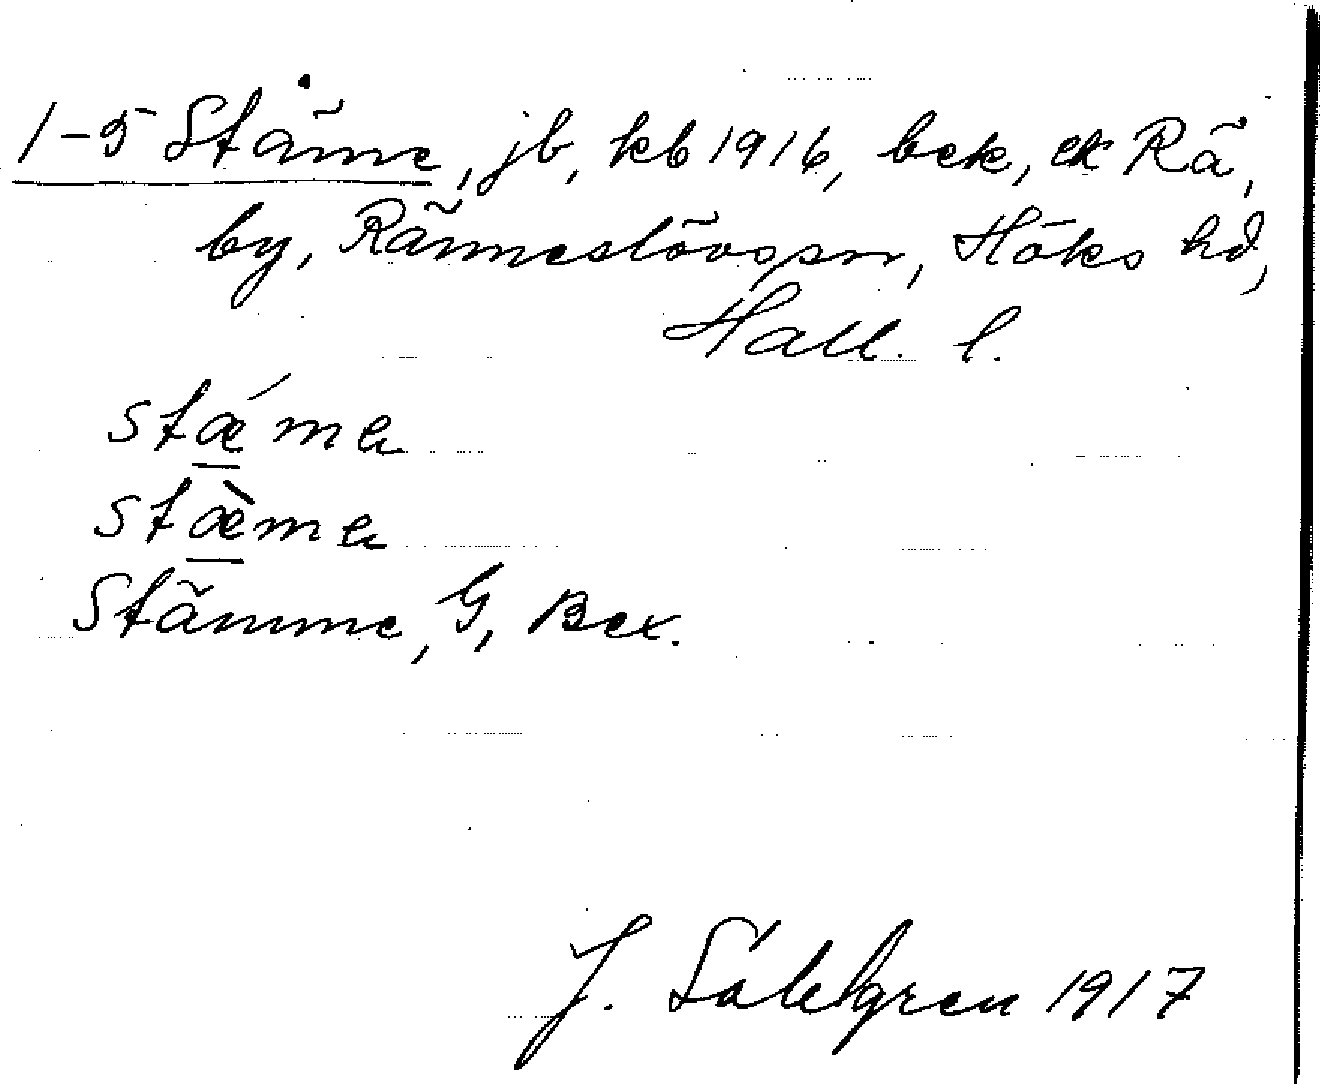 1-5 Stäme, jb, kb 1916, bek, ek Rä,
by, Ränneslövs sn, Höks hd,
Hall. l.
stǽmɐ
stæ̀mɐ
Stämme, G, Bex.
J. Sahlgren 1917